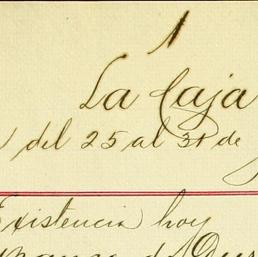 1
La Caja
del 25 al 31 de
Existencia hoy